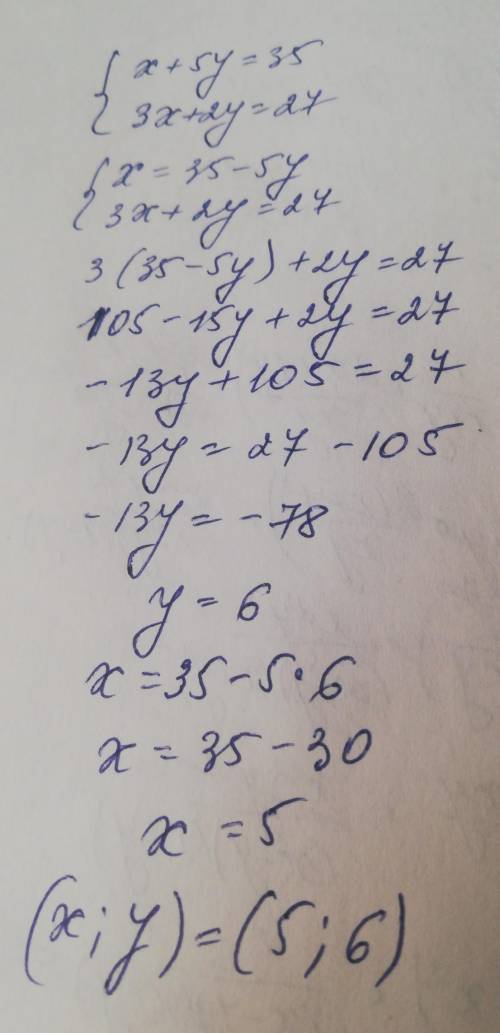 x + 5y = 35
3x + 2y = 27
x = 35 - 5y
3x + 2y = 27
3 (35 - 5y) + 2y = 27
105 - 15y + 2y = 27
- 13y + 105 = 27
- 13y = 27 - 105
- 13y = - 78
y = 6
x = 35 - 5 · 6
x = 35 - 30
x = 5
(x; y) = (5; 6)